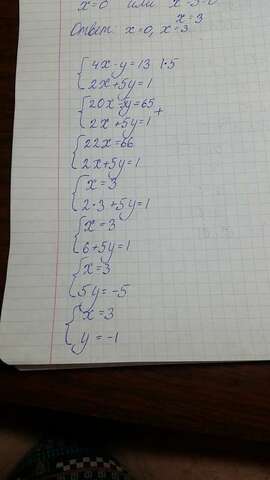 x=0 или x-3=0
x=3
Ответ: x=0, x=3
{ 4x-y=13 |·5
2x+5y=1
{ 20x-5y=65
2x+5y=1 +
{ 22x=66
2x+5y=1
{ x=3
2·3+5y=1
{ x=3
6+5y=1
{ x=3
5y=-5
{ x=3
y=-1